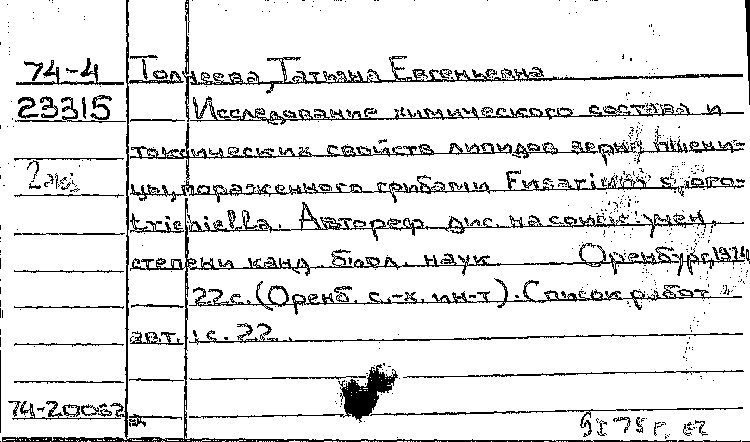 74-4 Толчеева, Татьяна Евгеньевна
23315 Исследование химического состава и
токсических свойств липидов зерна пшени-
2 экз цы, пораженного грибами Fusarium sporo-
trichiella. Автореф. дис. на соиск. учен.
степени канд. биол. наук. Оренбург, 1974
22 с. (Оренб. с.-х. ин-т). Список работ
авт.: с. 22.
74-20062